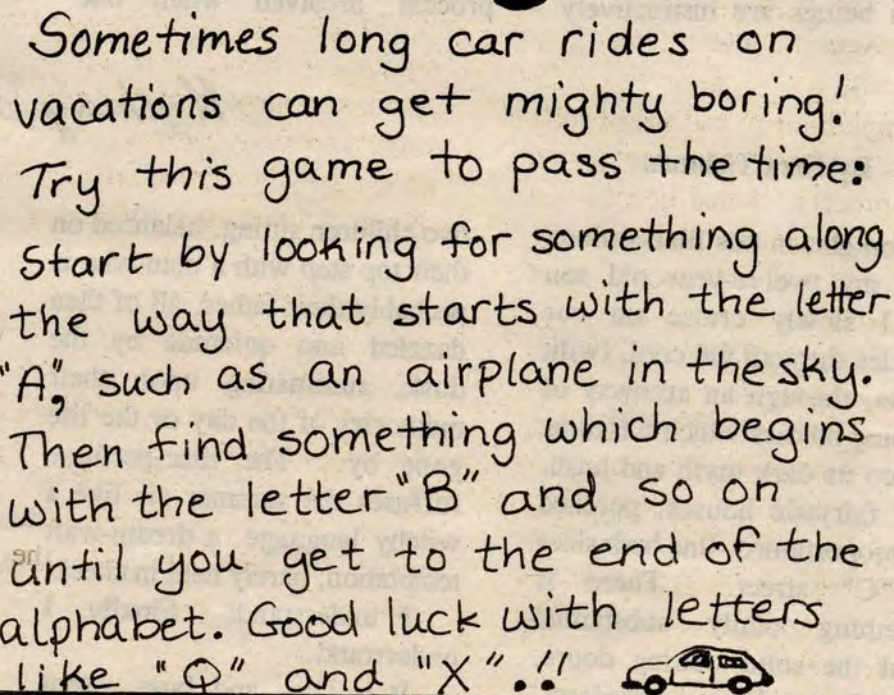 Sometimes long car rides on
vacations can get mighty boring!
Try this game to pass the time:
Start by looking for something along
the way that starts with the letter
"A", such as an airplane in the sky.
Then find something which begins
with the letter "B" and so on
until you get to the end of the
alphabet. Good luck with letters
like "Q" and "X" .!!